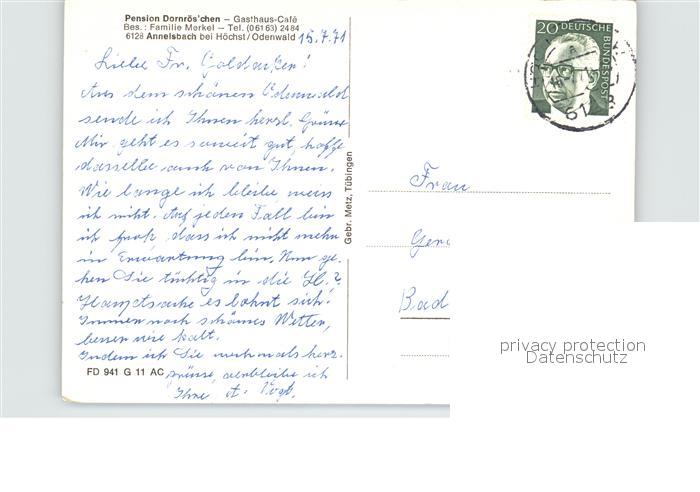 Pension Dornrös'chen – Gasthaus-Café
Bes.: Familie Morkel – Tel. (06163) 2484
6128 Annelsbach bei Höchst/Odenwald
15.7.71
Liebe Fr. Goldacker!
Aus dem schönen Odenwald
sende ich Ihnen herzl. Grüsse
Mir geht es soweit gut, hoffe
dasselbe auch von Ihnen.
Wie lange ich bleibe weis
ich nicht. Auf jeden Fall bin
ich froh, dass ich nicht mehr
in Erwartung bin. Nun ge-
hen Sie tüchtig in die H.?
Hauptsache es lohnt sich!
Immer noch schönes Wetter,
besser wie kalt.
Indem ich Sie nochmals herz.
grüsse, verbleibe ich
Ihre A. Vogt.
FD 941 G 11 AC
Gebr. Metz, Tübingen
20 DEUTSCHE
BUNDESPOST
Frau
Ger
Bad
privacy protection
Datenschutz